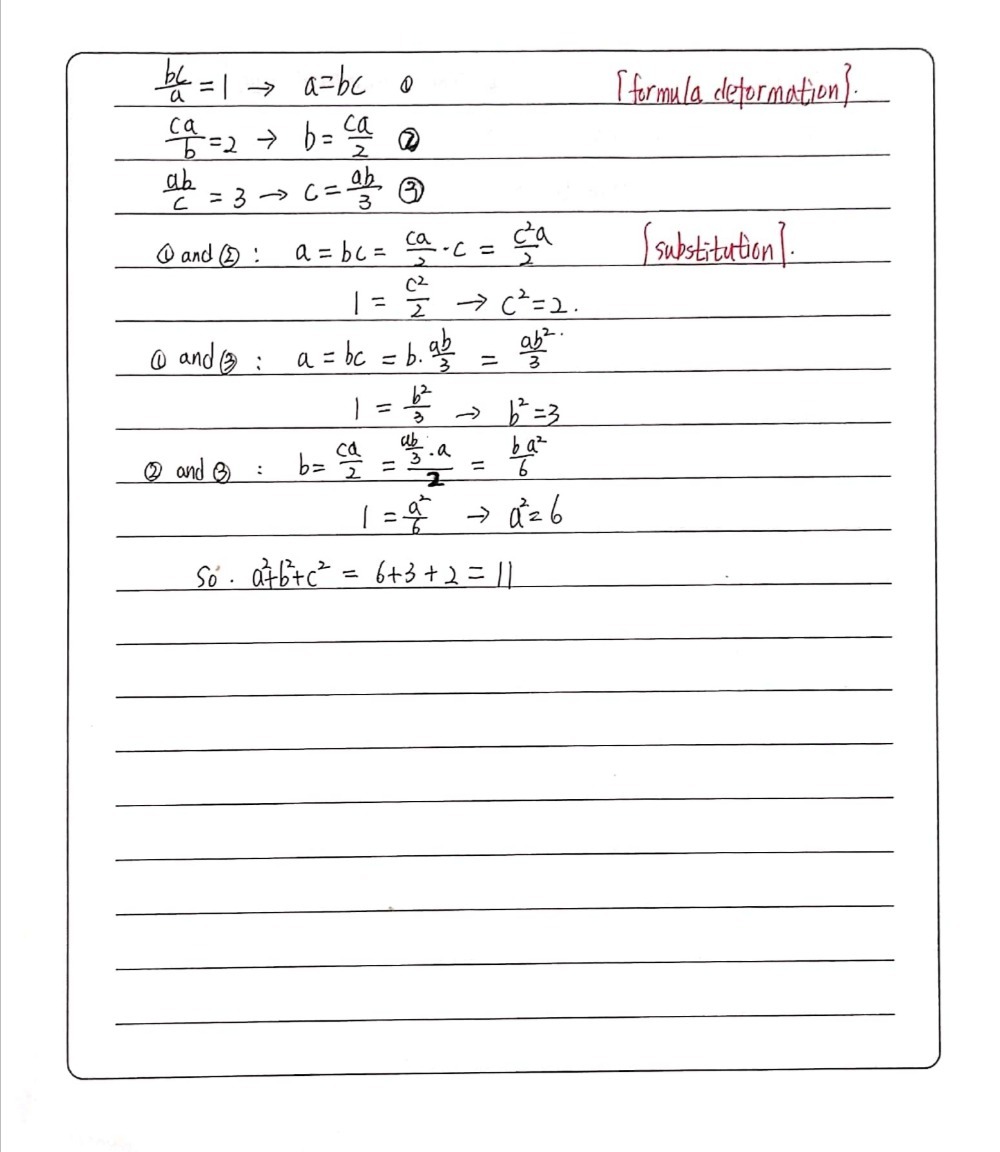 bc/a = 1 → a=bc ① [formula deformation].
ca/b = 2 → b = ca/2 ②
ab/c = 3 → c = ab/3 ③
① and ② : a = bc = ca/2 · c = c²a/2 [substitution].
1 = c²/2 → c² = 2.
① and ③ : a = bc = b · ab/3 = ab²/3
1 = b²/3 → b² = 3
② and ③ : b = ca/2 = (ab/3 · a)/2 = ba²/6
1 = a²/6 → a² = 6
So . a²+b²+c² = 6+3+2 = 11